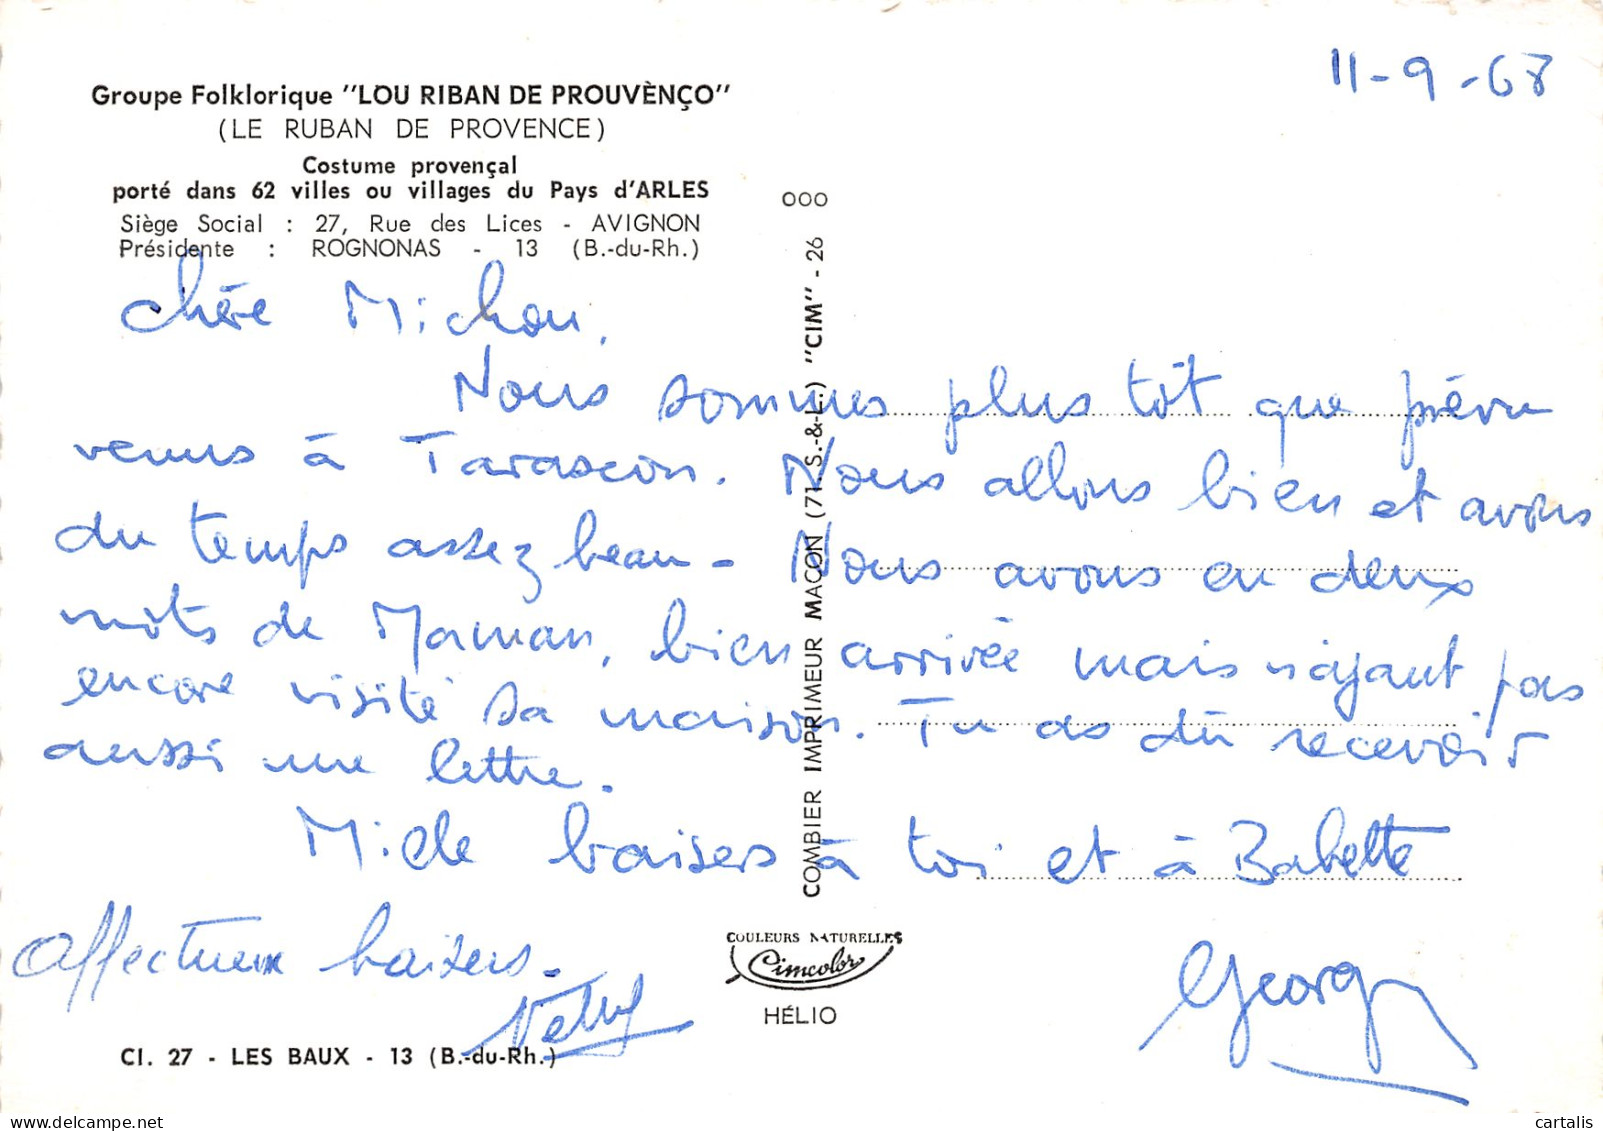 11-9-68
Groupe Folklorique "LOU RIBAN DE PROUVÈNÇO"
(LE RUBAN DE PROVENCE)
Costume provençal
porté dans 62 villes ou villages du Pays d'ARLES
Siège Social : 27, Rue des Lices - AVIGNON
Présidente : ROGNONAS - 13 (B.-du-Rh.)
Chère Michou,
Nous sommes plus tôt que prévu
venus à Tarascon. Nous allons bien et avons
du temps assez beau - Nous avons eu deux
mots de Maman, bien arrivée mais n'ayant pas
encore visité sa maison. Tu as dû recevoir
aussi une lettre.
Mille baisers à toi et à Babette
Affectueux baisers.
Georg
COMBIER IMPRIMEUR MACON (71. S.-&-L.) "CIM" - 26
OOO
COULEURS NATURELLES
Cimcolor
HÉLIO
CI. 27 - LES BAUX - 13 (B.-du-Rh.)
cartalis
www.delcampe.net